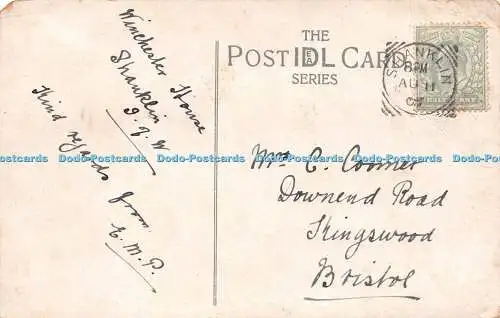 THE
POST IDEAL CARD
SERIES
SHANKLIN
8 PM
AU 11
07
HALFPENNY
Winchester House
Shanklin
I. of W
Kind regards from
E. M. P.
Mrs C. Coomer
Downend Road
Kingswood
Bristol
Dodo-Postcards Dodo-Postcards Dodo-Postcards Dodo-Postcards Dodo-Postcards